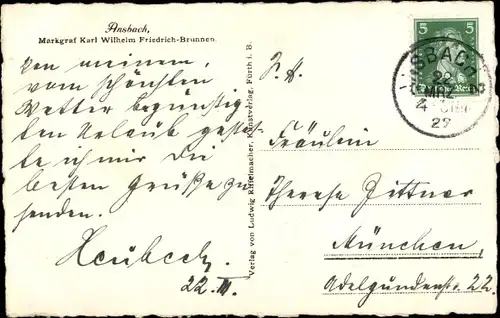 Ansbach,
Markgraf Karl Wilhelm Friedrich-Brunnen.
Von meinem,
vom schönsten
Wetter begünstig-
ten Urlaub gestat-
te ich mir die
besten Grüße zu
senden.
Heubeck.
22.III.
Verlag von Ludwig Riffelmacher, Kunstverlag, Fürth i. B.
5 5
ANSBACH 2
22
MRZ
27
S. H.
Fräulein
Therese Zittner
München
Adelgundenstr. 22.